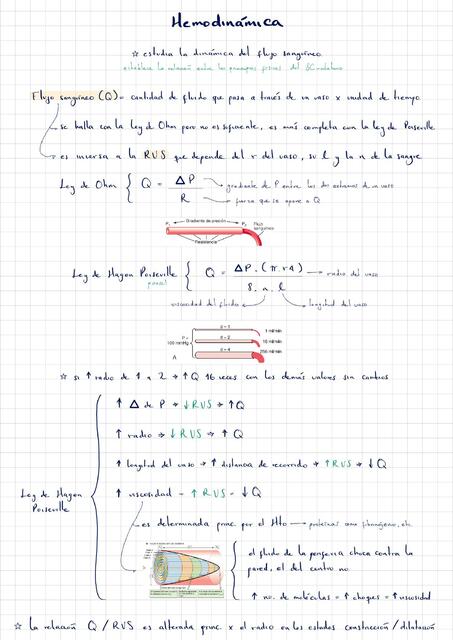 Hemodinámica
☆ estudia la dinámica del flujo sanguíneo
establece la relación entre los principios físicos del
Flujo sanguíneo (Q) = cantidad de fluido que pasa a través de un vaso x unidad de tiempo
se halla con la ley de Ohm pero no es suficiente, es más completa con la ley de Poiseville
es inversa a la RVS que depende del r del vaso, su l y la n de la sangre
Ley de Ohm { Q = ΔP / R
gradiente de P entre los dos extremos de un vaso
fuerza que se opone a Q
Gradiente de presión
P₁ P₂ Flujo sanguíneo
Resistencia
Ley de Hagen Poiseville { Q = ΔP . (π. r4) / 8. n. l
radio del vaso
viscosidad del fluido
longitud del vaso
d = 1 1 ml/min
P = 100 mmHg d = 2 16 ml/min
d = 4 256 ml/min
A
☆ si ↑ radio de 1 a 2 → ↑ Q 16 veces con los demás valores sin cambios
↑ Δ de P → ↓ RVS → ↑ Q
↑ radio → ↓ RVS → ↑ Q
↑ longitud del vaso → ↑ distancia de recorrido → ↑ RVS → ↓ Q
Ley de Hagen Poiseville
↑ viscosidad → ↑ RVS → ↓ Q
es determinada princ. por el Hto → proteínas como fibrinógeno, etc.
el fluido de la periferia choca contra la
pared, el del centro no
↑ no. de moléculas = ↑ choques = ↑ viscosidad
☆ la relación Q / RVS es alterada princ. x el radio en los estados constricción / dilatación